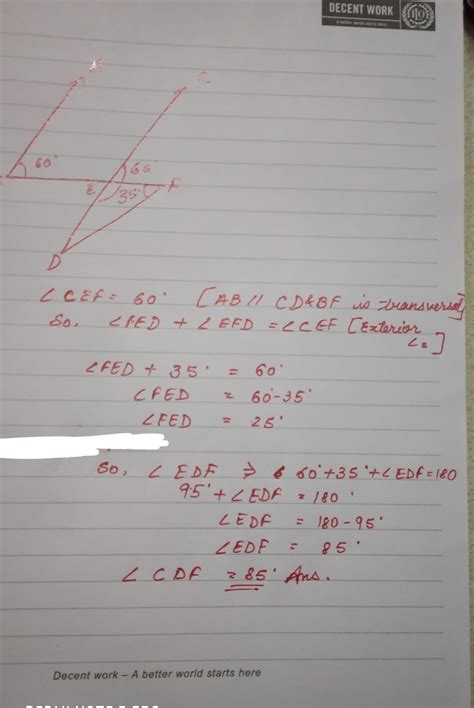 DECENT WORK
A better world starts here
C
60°
60°
E
35°
F
D
∠CEF = 60° [AB // CD & BF is transversal]
So, ∠FED + ∠EFD = ∠CEF [Exterior
∠s]
∠FED + 35° = 60°
∠FED = 60-35°
∠FED = 25°
So, ∠EDF ⇒ 60°+35°+∠EDF=180
95°+∠EDF = 180°
∠EDF = 180-95°
∠EDF = 85°
∠CDF = 85° Ans.
Decent work – A better world starts here